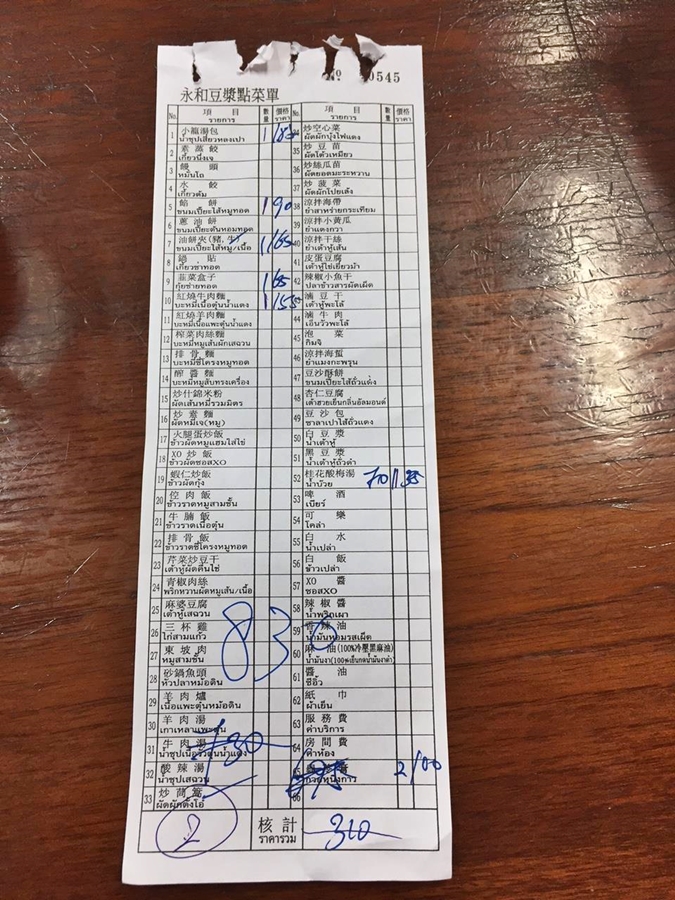 0545
永和豆漿點菜單
No. 項目 รายการ 數量 價格 ราคา No. 項目 รายการ 數量 價格 ราคา
1 小籠湯包 1 185 炒空心菜
น้ำซุปเสี่ยวหลงเปา ผัดผักบุ้งไฟแดง
2 素蒸餃 35 炒豆苗
เกี๊ยวนึ่งเจ ผัดโต้วเหมียว
3 饅頭 36 炒絲瓜苗
หมั่นโถ ผัดยอดมะระหวาน
4 水餃 37 炒菠菜
เกี๊ยวต้ม ผัดผักโปยเล้ง
5 餡餅 1 90 38 涼拌海帶
ขนมเปี๊ยะไส้หมูทอด ยำสาหร่ายกระเทียม
6 蔥油餅 39 涼拌小黃瓜
ขนมเปี๊ยะต้นหอมทอด ยำแตงกวา
7 油餅夾(豬,牛) 1 165 40 涼拌干絲
ขนมเปี๊ยะไส้หมู/เนื้อ ยำเต้าหู้เส้น
8 鍋貼 41 皮蛋豆腐
เกี๊ยวซ่าทอด เต้าหู้ไข่เยี่ยวม้า
9 韮菜盒子 1 65 42 辣椒小魚干
กุ๋ยช่ายทอด ปลาข้าวสารผัดเผ็ด
10 紅燒牛肉麵 1 155 43 滷豆干
บะหมี่เนื้อตุ๋นน้ำแดง เต้าหู้พะโล้
11 紅燒羊肉麵 44 滷牛肉
บะหมี่เนื้อแพะตุ๋นน้ำแดง เอ็นวัวพะโล้
12 榨菜肉絲麵 45 泡菜
บะหมี่หมูเส้นผักเสฉวน กิมจิ
13 排骨麵 46 涼拌海蜇
บะหมี่ซี่โครงหมูทอด ยำแมงกะพรุน
14 酢醬麵 47 豆沙酥餅
บะหมี่หมูสับทรงเครื่อง ขนมเปี๊ยะไส้ถั่วแดง
15 炒什錦米粉 48 杏仁豆腐
ผัดเส้นหมี่รวมมิตร เต้าฮวยเย็นกลิ่นอัลมอนด์
16 炒素麵 49 豆沙包
ผัดหมี่เจ(หมู) ซาลาเปาไส้ถั่วแดง
17 火腿蛋炒飯 50 白豆漿
ข้าวผัดหมูแฮมใส่ไข่ น้ำเต้าหู้
18 XO炒飯 51 黑豆漿
ข้าวผัดซอสXO น้ำเต้าหู้ถั่วดำ
19 蝦仁炒飯 52 桂花酸梅湯
ข้าวผัดกุ้ง น้ำบ๊วย
20 控肉飯 53 啤酒
ข้าวราดหมูสามชั้น เบียร์
21 牛腩飯 54 可樂
ข้าวราดเนื้อตุ๋น โคล่า
22 排骨飯 55 白水
ข้าวราดซี่โครงหมูทอด น้ำเปล่า
23 芹菜炒豆干 56 白飯
เต้าหู้ผัดคื่นไช่ ข้าวเปล่า
24 青椒肉絲 57 XO醬
พริกหวานผัดหมูเส้น/เนื้อ ซอสXO
25 麻婆豆腐 58 辣椒醬
เต้าหู้เสฉวน น้ำพริกเผา
26 三杯雞 59 香辣油
ไก่สามแก้ว น้ำมันหอมรสเผ็ด
830
27 東坡肉 60 麻油(100%冷壓黑麻油)
หมูสามชั้น น้ำมันงา
28 砂鍋魚頭 61 醬油
หัวปลาหม้อดิน ซีอิ๊ว
29 羊肉爐 62 紙巾
เนื้อแพะตุ๋นหม้อดิน ผ้าเย็น
30 羊肉湯 63 服務費
เกาเหลาแพะตุ๋น ค่าบริการ
31 牛肉湯 64 房間費
น้ำซุปเนื้อวัวตุ๋นน้ำแดง ค่าห้อง
730
32 酸辣湯 2/00
น้ำซุปเสฉวน
33 炒茼蒿 66
ผัดผักตังโอ๋
2 核計 310
ราคารวม